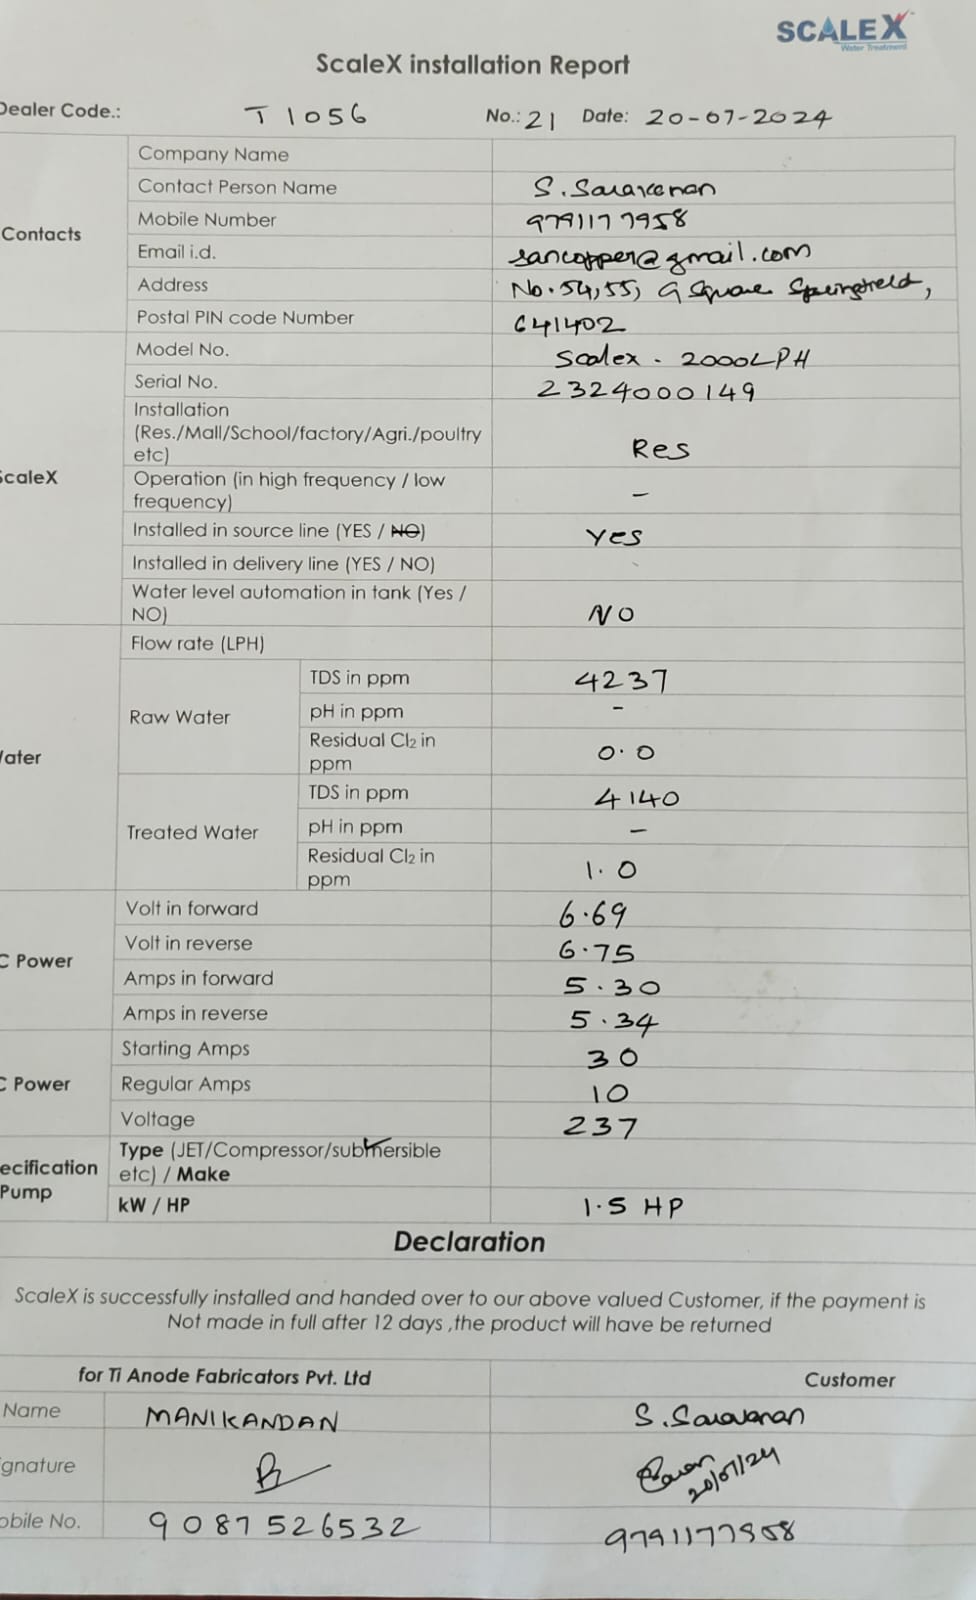 SCALEX
Water Treatment
ScaleX installation Report
Dealer Code.: T 1056 No.: 21 Date: 20-07-2024
Contacts
Company Name
Contact Person Name S. Saravanan
Mobile Number 9791177958
Email i.d. sancopper@gmail.com
Address No. 54,55, G Square Springfield,
Postal PIN code Number 641402
ScaleX
Model No. Scalex - 2000LPH
Serial No. 2324000149
Installation
(Res./Mall/School/factory/Agri./poultry
etc) Res
Operation (in high frequency / low
frequency) -
Installed in source line (YES / NO) YES
Installed in delivery line (YES / NO)
Water level automation in tank (Yes /
NO) NO
Water
Flow rate (LPH)
Raw Water
TDS in ppm 4237
pH in ppm -
Residual Cl2 in
ppm 0.0
Treated Water
TDS in ppm 4140
pH in ppm -
Residual Cl2 in
ppm 1.0
C Power
Volt in forward 6.69
Volt in reverse 6.75
Amps in forward 5.30
Amps in reverse 5.34
C Power
Starting Amps 30
Regular Amps 10
Voltage 237
ecification
Pump
Type (JET/Compressor/submersible
etc) / Make
kW / HP 1.5 HP
Declaration
ScaleX is successfully installed and handed over to our above valued Customer, if the payment is
Not made in full after 12 days ,the product will have be returned
for Ti Anode Fabricators Pvt. Ltd Customer
Name MANIKANDAN S. Saravanan
gnature 20/07/24
obile No. 9087526532 9791177958